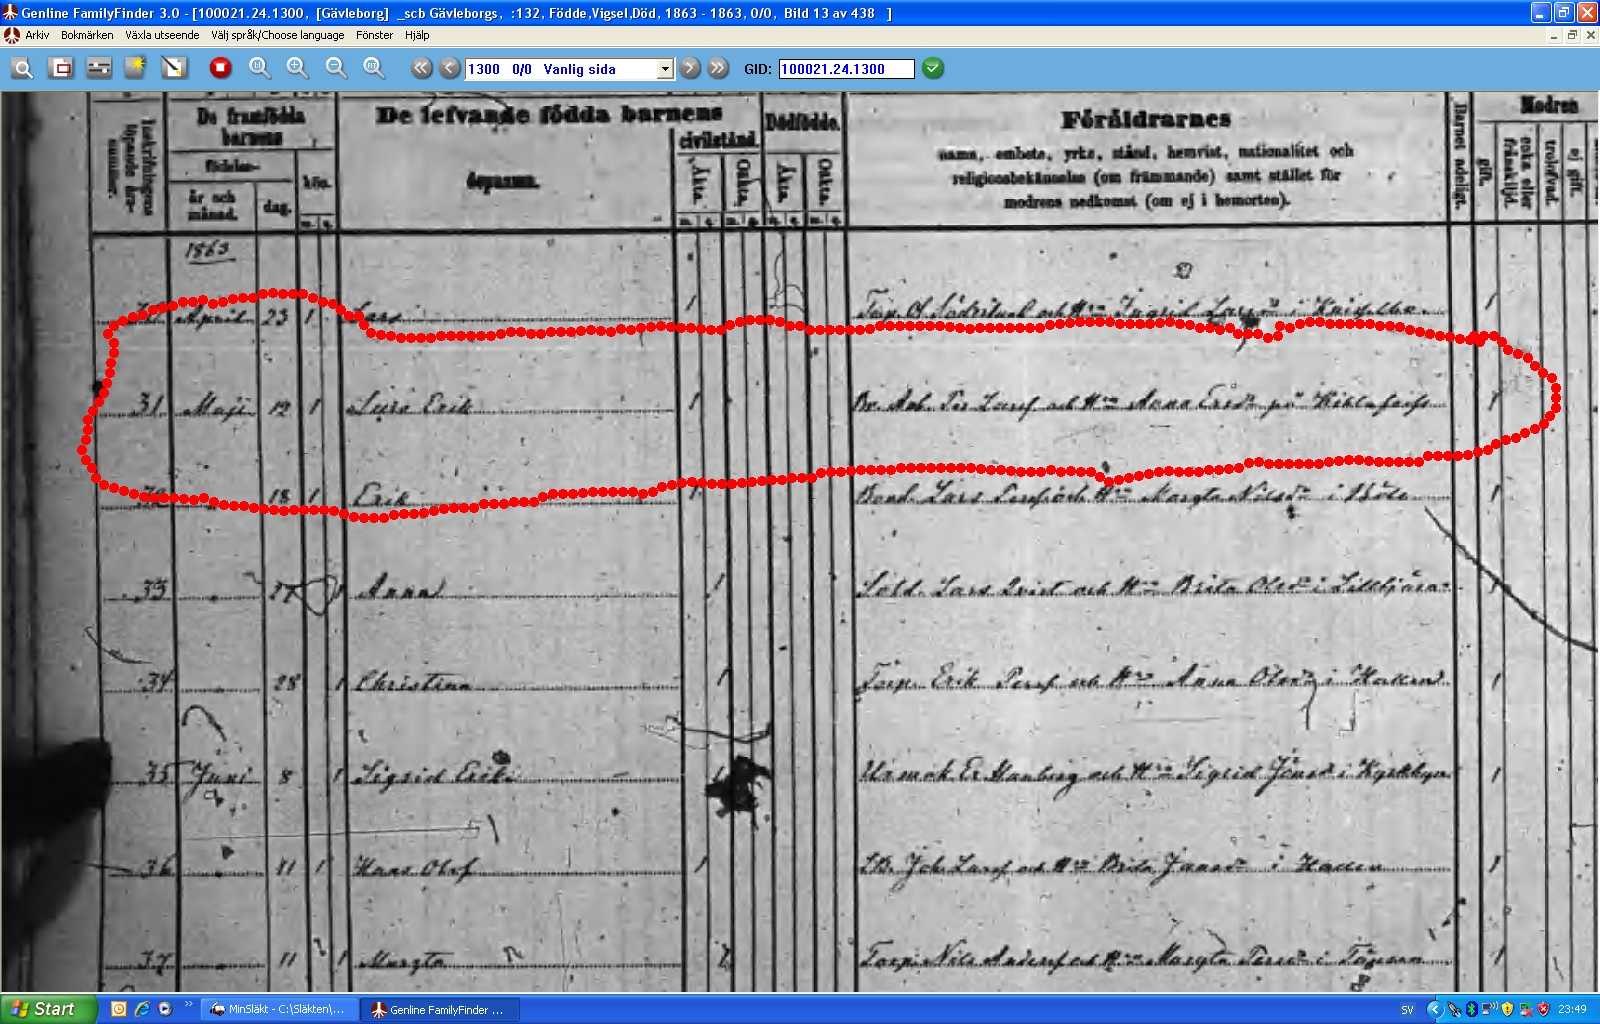 Genline FamilyFinder 3.0 - [100021.24.1300, [Gävleborg] _scb Gävleborgs, :132, Födde,Vigsel,Död, 1863 - 1863, 0/0, Bild 13 av 438 ]
Arkiv Bokmärken Växla utseende Välj språk/Choose language Fönster Hjälp
1300 0/0 Vanlig sida GID: 100021.24.1300
Inskrifningens löpande årsnummer.
De framfödda barnens
födelse-
år och månad.
dag.
kön.
m. q.
De lefvande födda barnens
dopnamn.
civilstånd.
Äkta. Oäkta.
m. q. m. q.
Dödfödde.
Äkta. Oäkta.
m. q. m. q.
Föräldrarnes
namn, embete, yrke, stånd, hemvist, nationalitet och
religionsbekännelse (om främmande) samt stället för
modrens nedkomst (om ej i hemorten).
Barnet adeligt.
Modren
gift.
enka eller frånskild.
trolofvad.
ej gift.
1863
April 23 1 Lars 1 och Hn Ingrid i 1
31 Maji 12 1 Erik 1 Per Larss och Hn Anna Ersdr på 1
18 1 Erik 1 Bond. Lars Perss och Hn Margta Nilsdr i 1
33 27 1 Anna 1 Sold. Lars Qvist och Hn Brita Olsdr i 1
34 28 1 Christina 1 Torp. Erik Perss och Hn Anna Olsdr i Hallen 1
35 Juni 8 1 Sigrid 1 Urmak. Er. Hamberg och Hn Sigrid Jönsdr i Kyrkbyn 1
36 11 1 Hans Olof 1 Larss och Hn Brita Jansdr i Hallen 1
37 11 1 Margta 1 Torp. Nils Anderss och Hn Margta Persdr i 1
Start MinSläkt - C:\Släkten\... Genline FamilyFinder ... SV 23:49